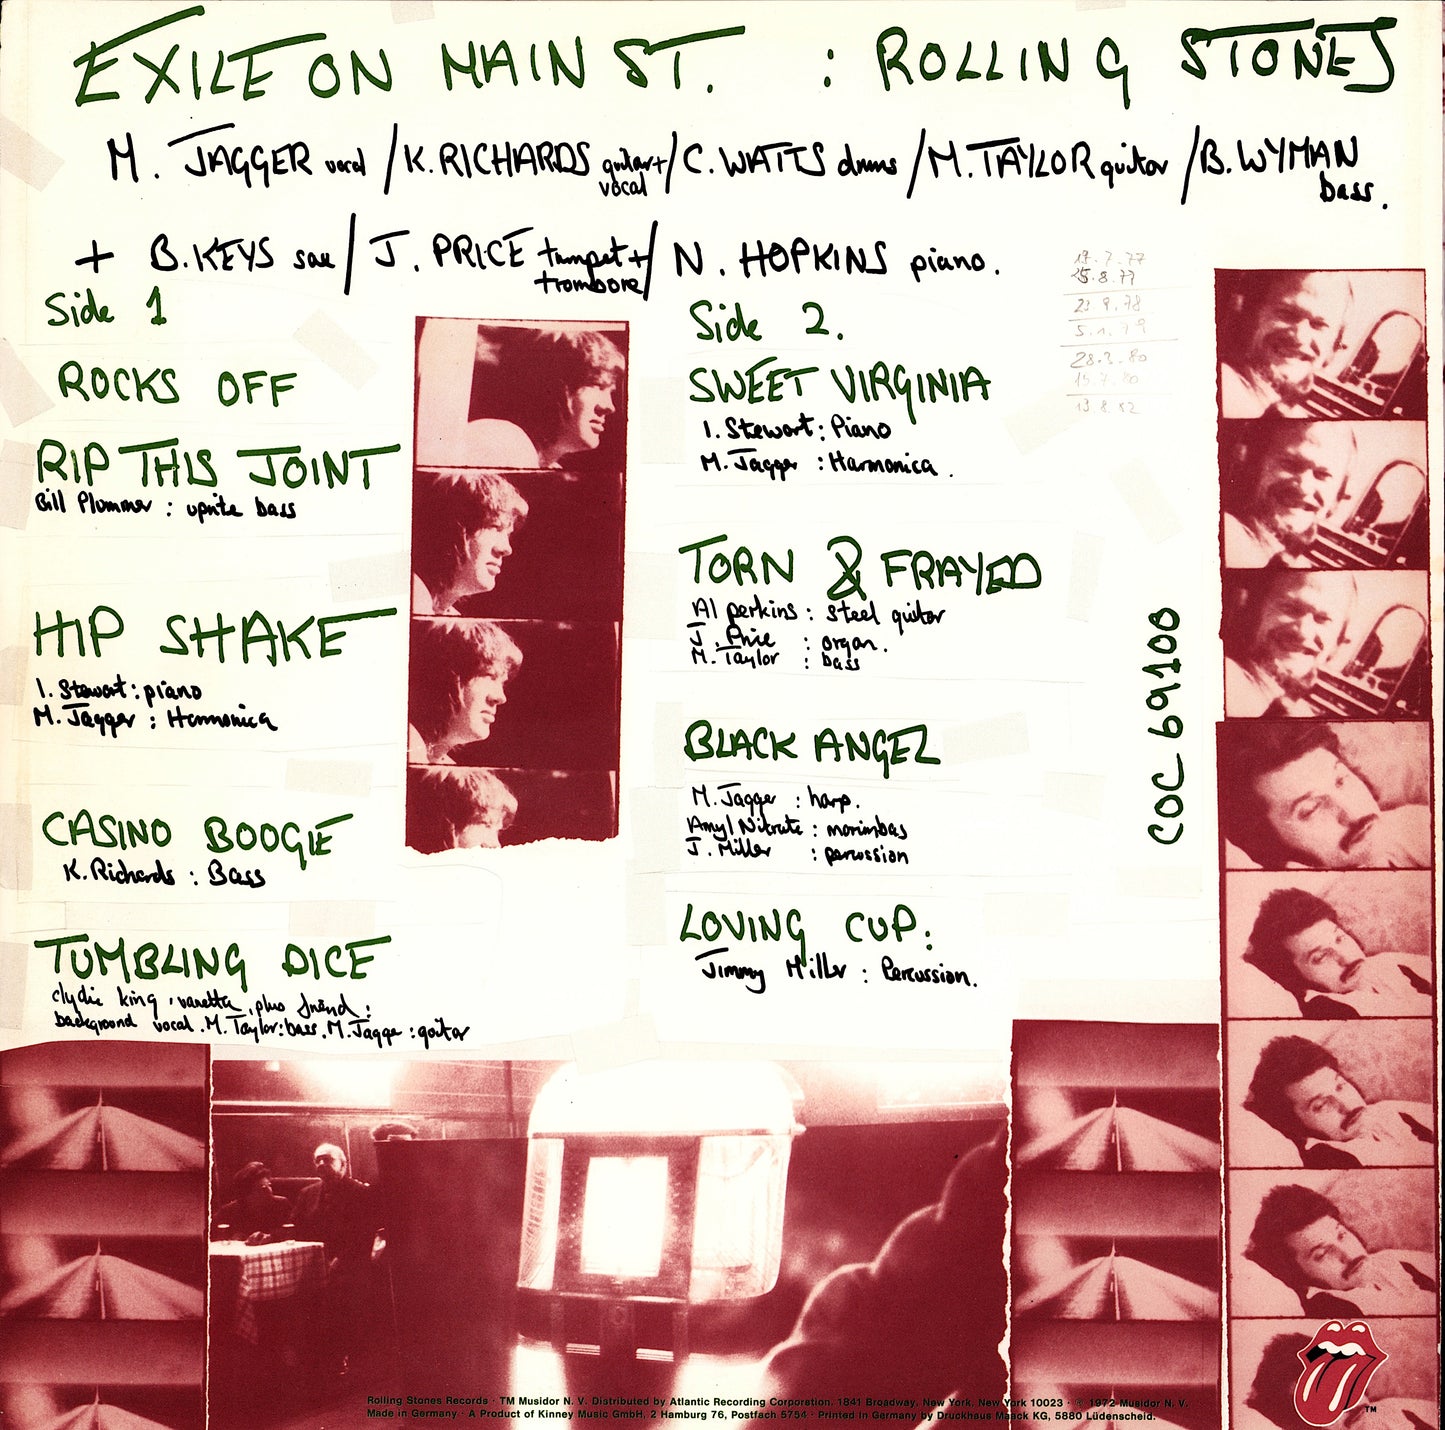 EXILE ON MAIN ST. : ROLLING STONES
M. JAGGER vocal / K. RICHARDS guitar + vocal / C. WATTS drums / M. TAYLOR guitar / B. WYMAN bass.
+ B. KEYS sax / J. PRICE trumpet + trombone / N. HOPKINS piano.
Side 1
ROCKS OFF
RIP THIS JOINT
Bill Plummer : uprite bass
HIP SHAKE
I. Stewart : piano
M. Jagger : Harmonica
CASINO BOOGIE
K. Richards : Bass
TUMBLING DICE
clydie king, vanetta, plus friend :
background vocal. M. Taylor: bass. M. Jagger : guitar
Side 2.
SWEET VIRGINIA
I. Stewart : Piano
M. Jagger : Harmonica.
TORN & FRAYED
Al perkins : steel guitar
J. Price : organ.
M. Taylor : bass
BLACK ANGEL
M. Jagger : harp.
Amyl Nitrate : marimbas
J. Miller : percussion
LOVING CUP.
Jimmy Miller : Percussion.
17.7.77
25.8.77
23.9.78
5.1.79
28.3.80
15.7.80
13.8.82
COC 69100
Rolling Stones Records · TM Musidor N. V. Distributed by Atlantic Recording Corporation. 1841 Broadway. New York. New York 10023 · ℗ 1972 Musidor N. V.
Made in Germany · A Product of Kinney Music GmbH, 2 Hamburg 76, Postfach 5754 · Printed in Germany by Druckhaus Maack KG, 5880 Lüdenscheid.
TM